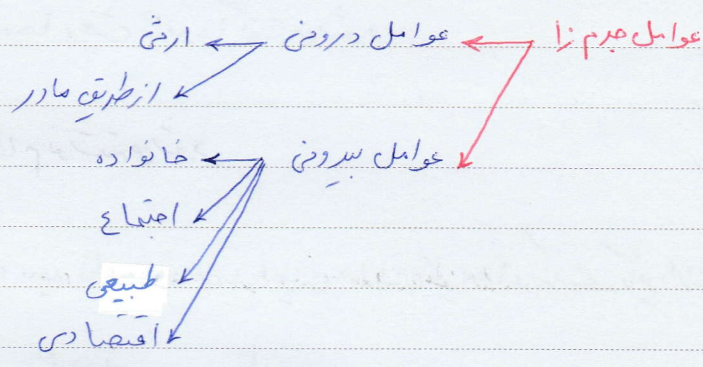 عوامل جرم زا عوامل درونی ارثی
از طریق مادر
عوامل بیرونی خانواده
اجتماع
طبیعی
اقتصادی